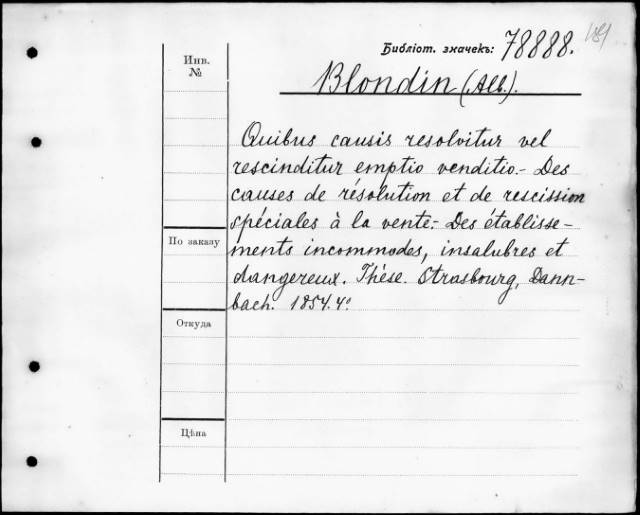 Библіот. значекъ: 78888.
Blondin (Alb.).
Инв.
№
Quibus causis resolvitur vel
rescinditur emptio venditio. - Des
causes de résolution et de rescission
spéciales à la vente. - Des établisse-
ments incommodes, insalubres et
dangereux. Thèse. Strasbourg, Dann-
bach. 1854. 4º
По заказу
Откуда
Цѣна